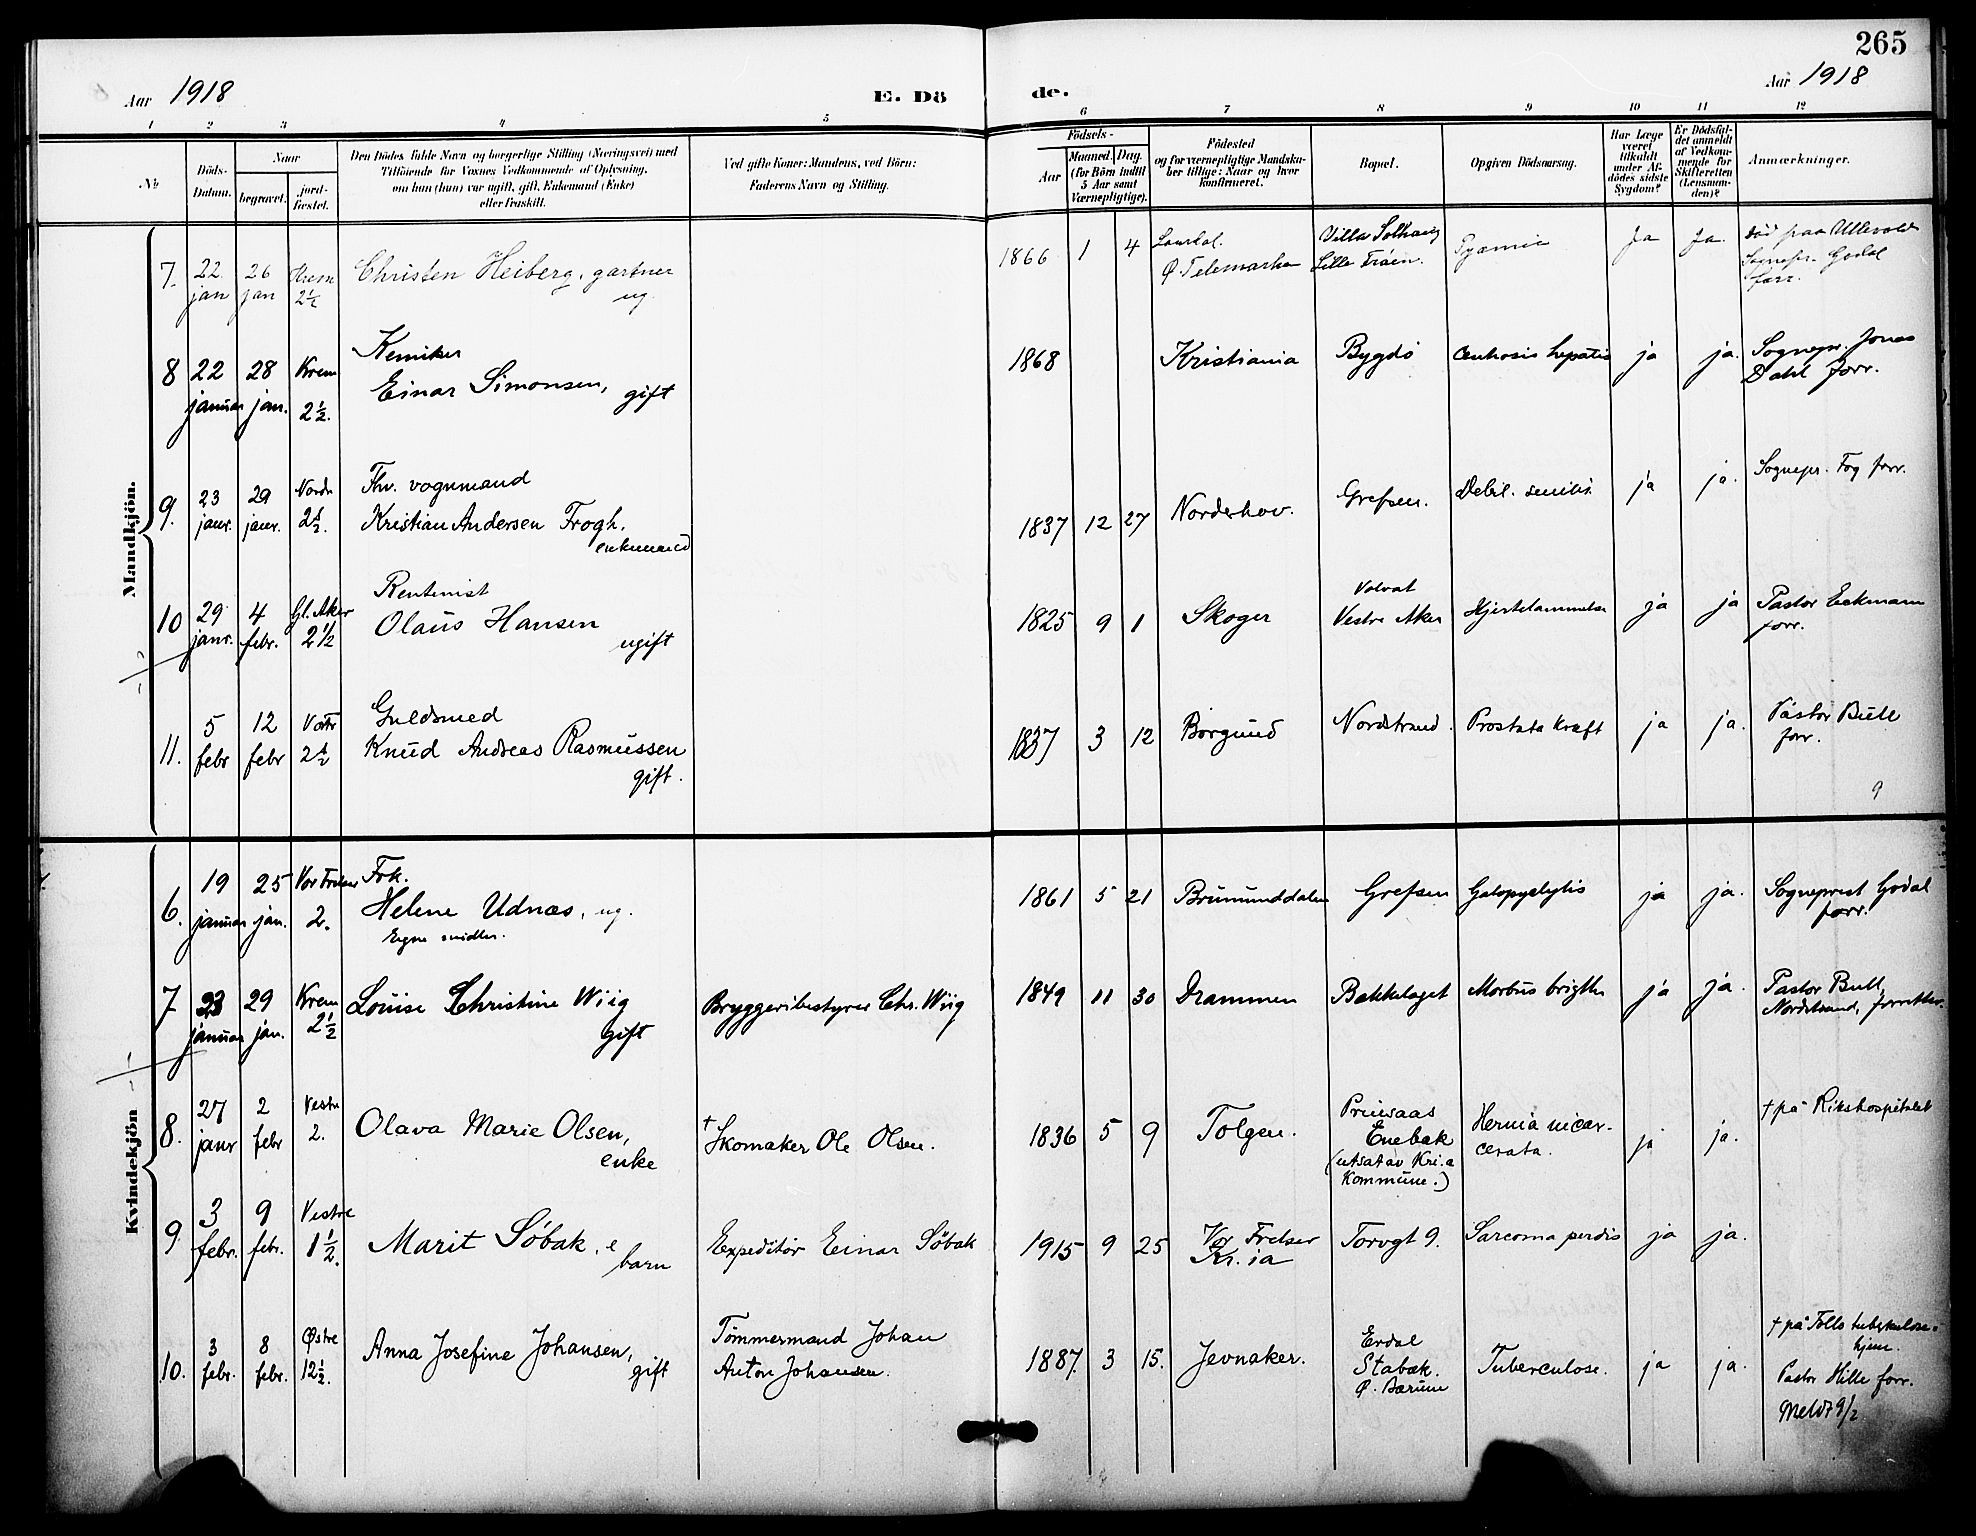 265
Aar 1918
E. Dö
de.
Aar 1918
1 2 3 4 5 6 7 8 9 10 11 12
No.
Döds-
Datum.
Naar
begravet.
jord-
fæstet.
Den Dödes fulde Navn og borgerlige Stilling (Næringsvei) med
Tilföiende for Voxnes Vedkommende af Oplysning,
om han (hun) var ugift, gift, Enkemand (Enke)
eller fraskilt.
Ved gifte Koner: Mandens, ved Börn:
Faderens Navn og Stilling.
Födsels-
Aar
Maaned. Dag.
(for Börn indtil
5 Aar samt
Værnepligtige).
Födested
og for værnepligtige Mandska-
ber tillige: Naar og hvor
konfirmeret.
Bopæl.
Opgiven Dödsaarsag.
Har Læge
været
tilkaldt
under Af-
dödes sidste
Sygdom?
Er Dödsfal-
det anmeldt
af Vedkom-
mende for
Skifteretten
(Lensman-
den)?
Anmærkninger.
Mandkjön.
7. 22 jan 26 jan Krem 2½ Christen Heiberg, gartner
ug.
1866 1 4 Ø. Telemarken
Villa Solhaug
Lille Frøen.
Pyæmie Ja Ja. død paa Ullevold
Sognepr. Godal
forr.
8 22 januar 28 jan. Krem 2½.
Kemiker
Einar Simonsen, gift
1868 Kristiania Bygdö hepatis ja ja. Sognepr. Jonas
Dahl forr.
9. 23 janr. 29 janr. Nordr 2½.
Fhv. vognmand
Kristian Andersen Frogh.
enkemand
1837 12 27 Norderhov. Grefsen. Debil. senilis. ja ja. Sognepr. Fog forr.
10 29 janr. 4 febr. Gl. Aker 2½
Rentenist
Olaus Hansen
ugift
1825 9 1 Skoger
Volvat
Vestre Aker
Hjertelammelse ja ja Pastor Eckmann
forr.
11. 5 febr 12 febr Vestr 2½
Guldsmed
Knud Andreas Rasmussen
gift.
1837 3 12 Borgund Nordstrand. Prostata kræft ja ja. Pastor Bull
forr.
9
Kvindekjön
6. 19 januar 25 jan. Vor Frelser 2.
Frk.
Helene Udnæs, ug.
Egne midler.
1861 5 21 Brumunddalen Grefsen ja ja. Sogneprest Godal
forr.
7 23 januar 29 jan. Krem 2½ Louise Christine Wiig
gift
Bryggeribestyrer Chr. Wiig
1849 11 30 Drammen Bakkelaget Morbus brigthi ja ja. Pastor Bull,
Nordstrand, forretter.
8. 27 janr 2 febr Vestre 2. Olava Marie Olsen,
enke
† Skomaker Ole Olsen.
1836 5 9 Tolgen.
Prinsaas
Enebak
(utsat av Kr.ia
Kommune.)
Hernia incar-
cerata.
ja ja. † på Rikshospitalet
9 3 febr. 9 febr. Vestre 1½. Marit Söbak, e
barn
Expeditør Einar Söbak
1915 9 25 Vor Frelser
Kr.ia
Torvgt 9. Sarcoma ja ja.
10. 3 febr. 8 febr. Østre 12½. Anna Josefine Johansen,
gift
Tömmermand Johan
Anton Johansen.
1887. 3 15. Jevnaker.
Stabæk.
Ø. Bærum
Tuberculose. ja ja.
† på Tolls tuberkulose-
hjem.
Pastor Hille forr.
Meldt 9/2